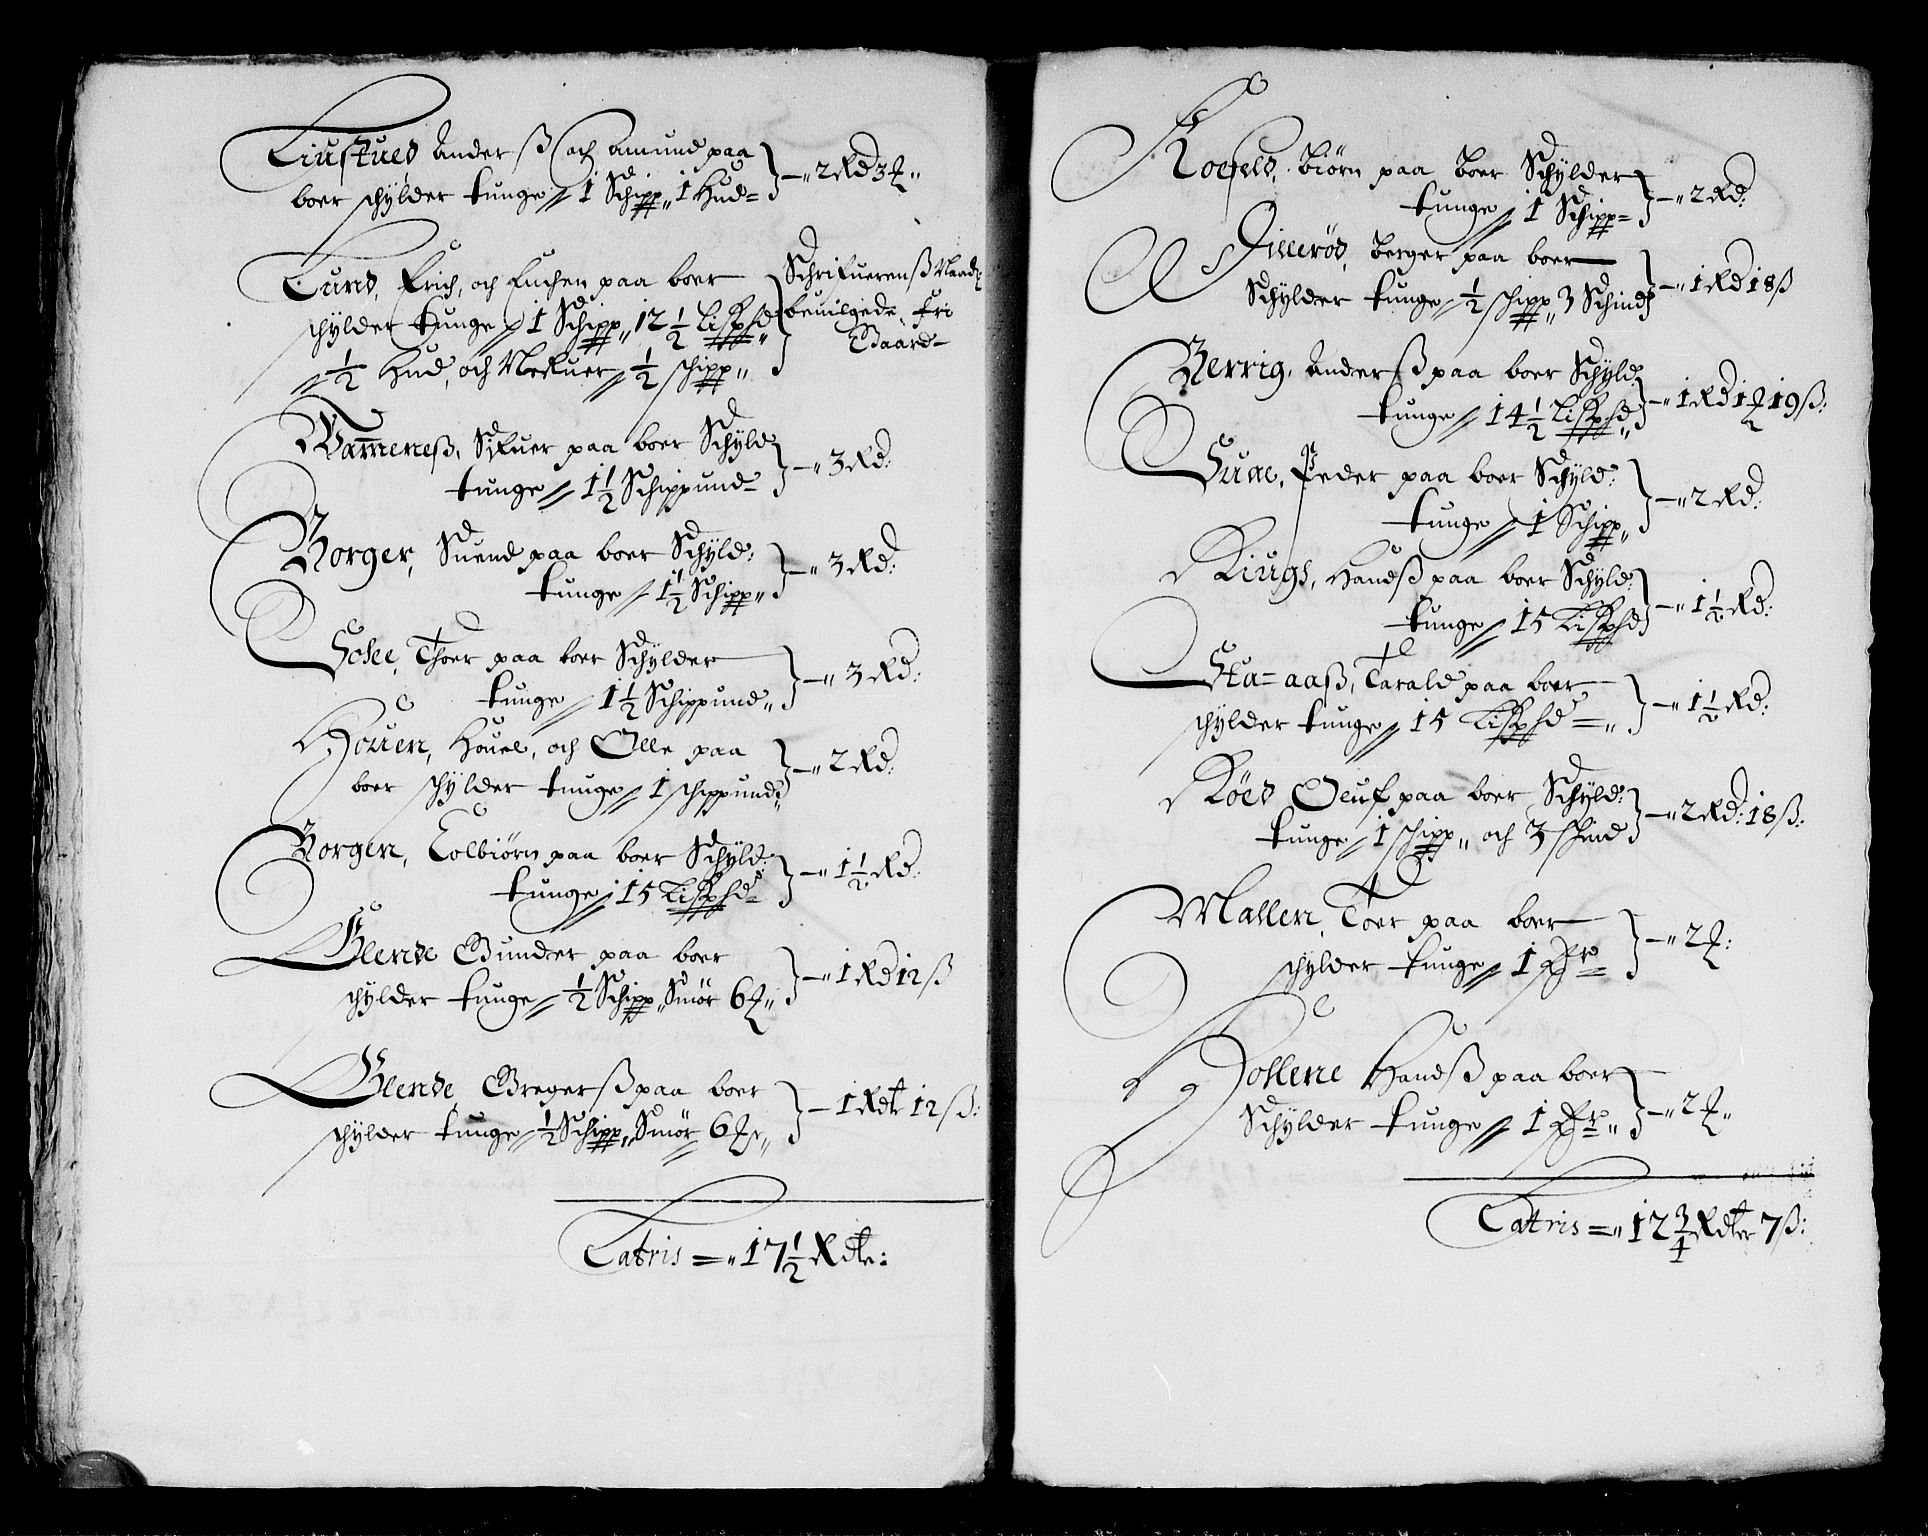 Liustued Anderß och Amund paa
boer schylder tunge 1 Schipp 1 Hud – 2 Rd 3 ℔
Lund, Erich, och Luchen paa boer
schylder tunge 1 Schipp 12½ Lispd
½ Hud, och Nerfuer ½ schipp
Schrifuerenß Naad:
beuilgede fri
Gaard
Wammeneß, Sifuer paa boer Schyld
tunge 1½ Schippund – 3 Rd:
Borger, Suend paa boer Schyld:
tunge 1½ Schipp – 3 Rd:
Solie, Thoer paa boer Schylder
tunge 1½ Schippund – 3 Rd:
Houen, Houel, och Olle paa
boer schylder tunge 1 schippund – 2 Rd:
Borgen, Tolbiørn paa boer Schyld:
tunge 15 Lispd – 1½ Rd:
Glende Gunder paa boer
schylder tunge ½ Schipp Smør 6 ℔ – 1 Rd 12 ß
Glende Gregerß paa boer
schylder tunge ½ Schipp Smør 6 ℔ – 1 Rdt 12 ß:
Latris = 17½ Rdlr:
Roefeld, Biørn paa boer Schylder
tunge 1 Schipp – 2 Rd:
Hillerød, Berger paa boer
Schylder tunge ½ schipp 3 Schind – 1 Rd 18 ß
Berrig, Anderß paa boer Schyld:
tunge 14½ Lispd – 1 Rd 1 ℔ 19 ß:
Sune, Peder paa boer Schyld:
tunge 1 Schipp – 2 Rd:
Kiugs, Handß paa boer Schyld:
tunge 15 Lispd – 1½ Rd:
Stu=aaß, Tarald paa boer
schylder tunge 15 Lispd – 1½ Rd:
Røed Oluf paa boer Schyld:
tunge 1 schipp och 3 schind – 2 Rd: 18 ß:
Mallen, Toer paa boer
schylder tunge 1 Fr – 2 ℔:
Hollene Handß paa boer
Schylder tunge 1 Fr – 2 ℔
Latris = 12 3/4 Rdler 7 ß: